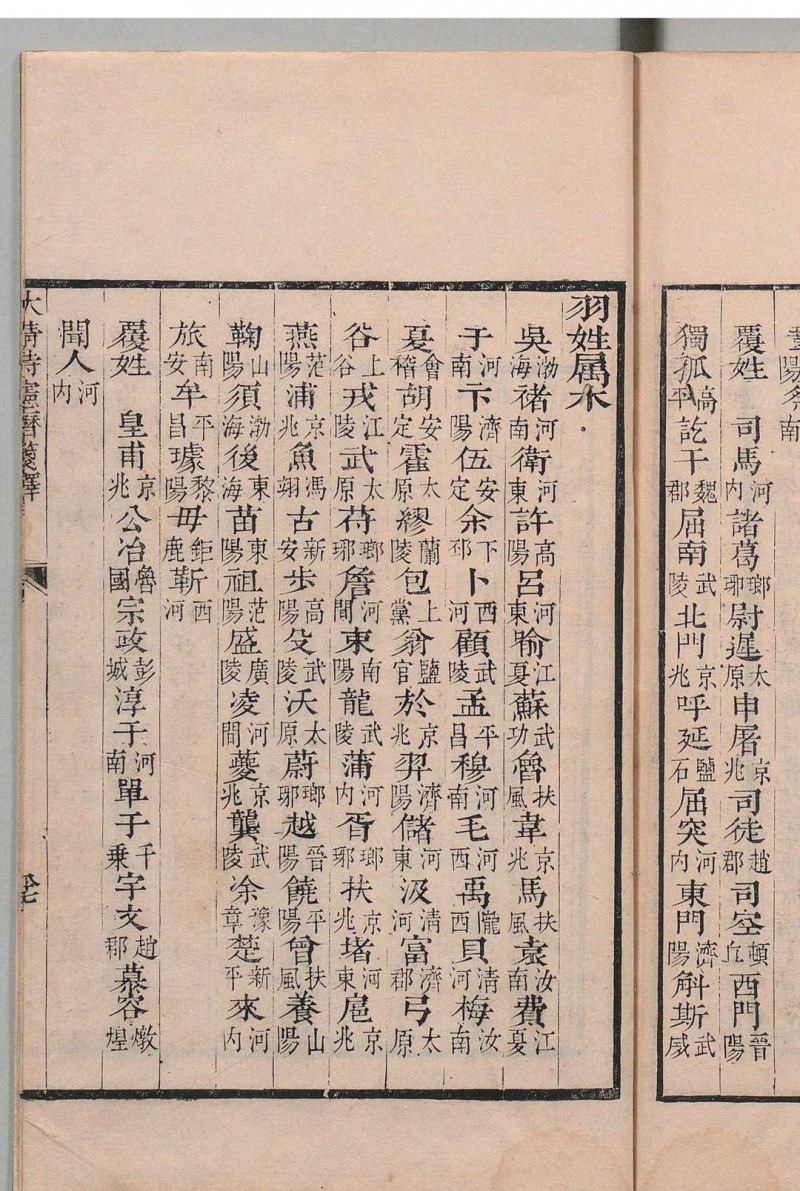 覆姓　司馬河內諸葛瑯琊尉遲太原申屠京兆司徒趙郡司空頓丘西門晉陽
獨孤高平訖干魏郡屈南武陵北門京兆呼延鹽石屈突河內東門濟陽斛斯武威
羽姓属水
吳渤海褚河南衛河東許高陽呂河東喻江夏蘇武功魯扶風韋京兆馬扶風袁汝南費江夏
于河南卞濟陽伍安定余下邳卜西河顧武陵孟平昌穆河南毛河西禹隴西貝清河梅汝南
夏會稽胡安定霍太原繆蘭陵包上黨翁鹽官於京兆羿濟陽儲河東汲清河富濟郡弓太原
谷上谷戎江陵武太原苻瑯琊詹河間束南陽龍武陵蒲河內胥瑯琊扶京兆堵河東扈京兆
燕范陽浦京兆魚馮翊古新安步高陽殳武陵沃太原蔚瑯琊越晉陽饒平陽曾扶風養山陽
鞠山陽須渤海後東海苗東陽祖范陽盛廣陵凌河間夔京兆龔武陵凃豫章楚新平來河內
旅南安牟平昌璩黎陽毋鉅鹿靳西河
覆姓　皇甫京兆公冶魯國宗政彭城淳于河南單于千乗宇文趙郡慕容燉煌
聞人河內
大清時憲曆箋釋